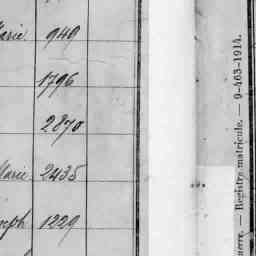 Marie 949
1796
2870
Marie 2435
1229
Registre matricule. — 9-463-1914.